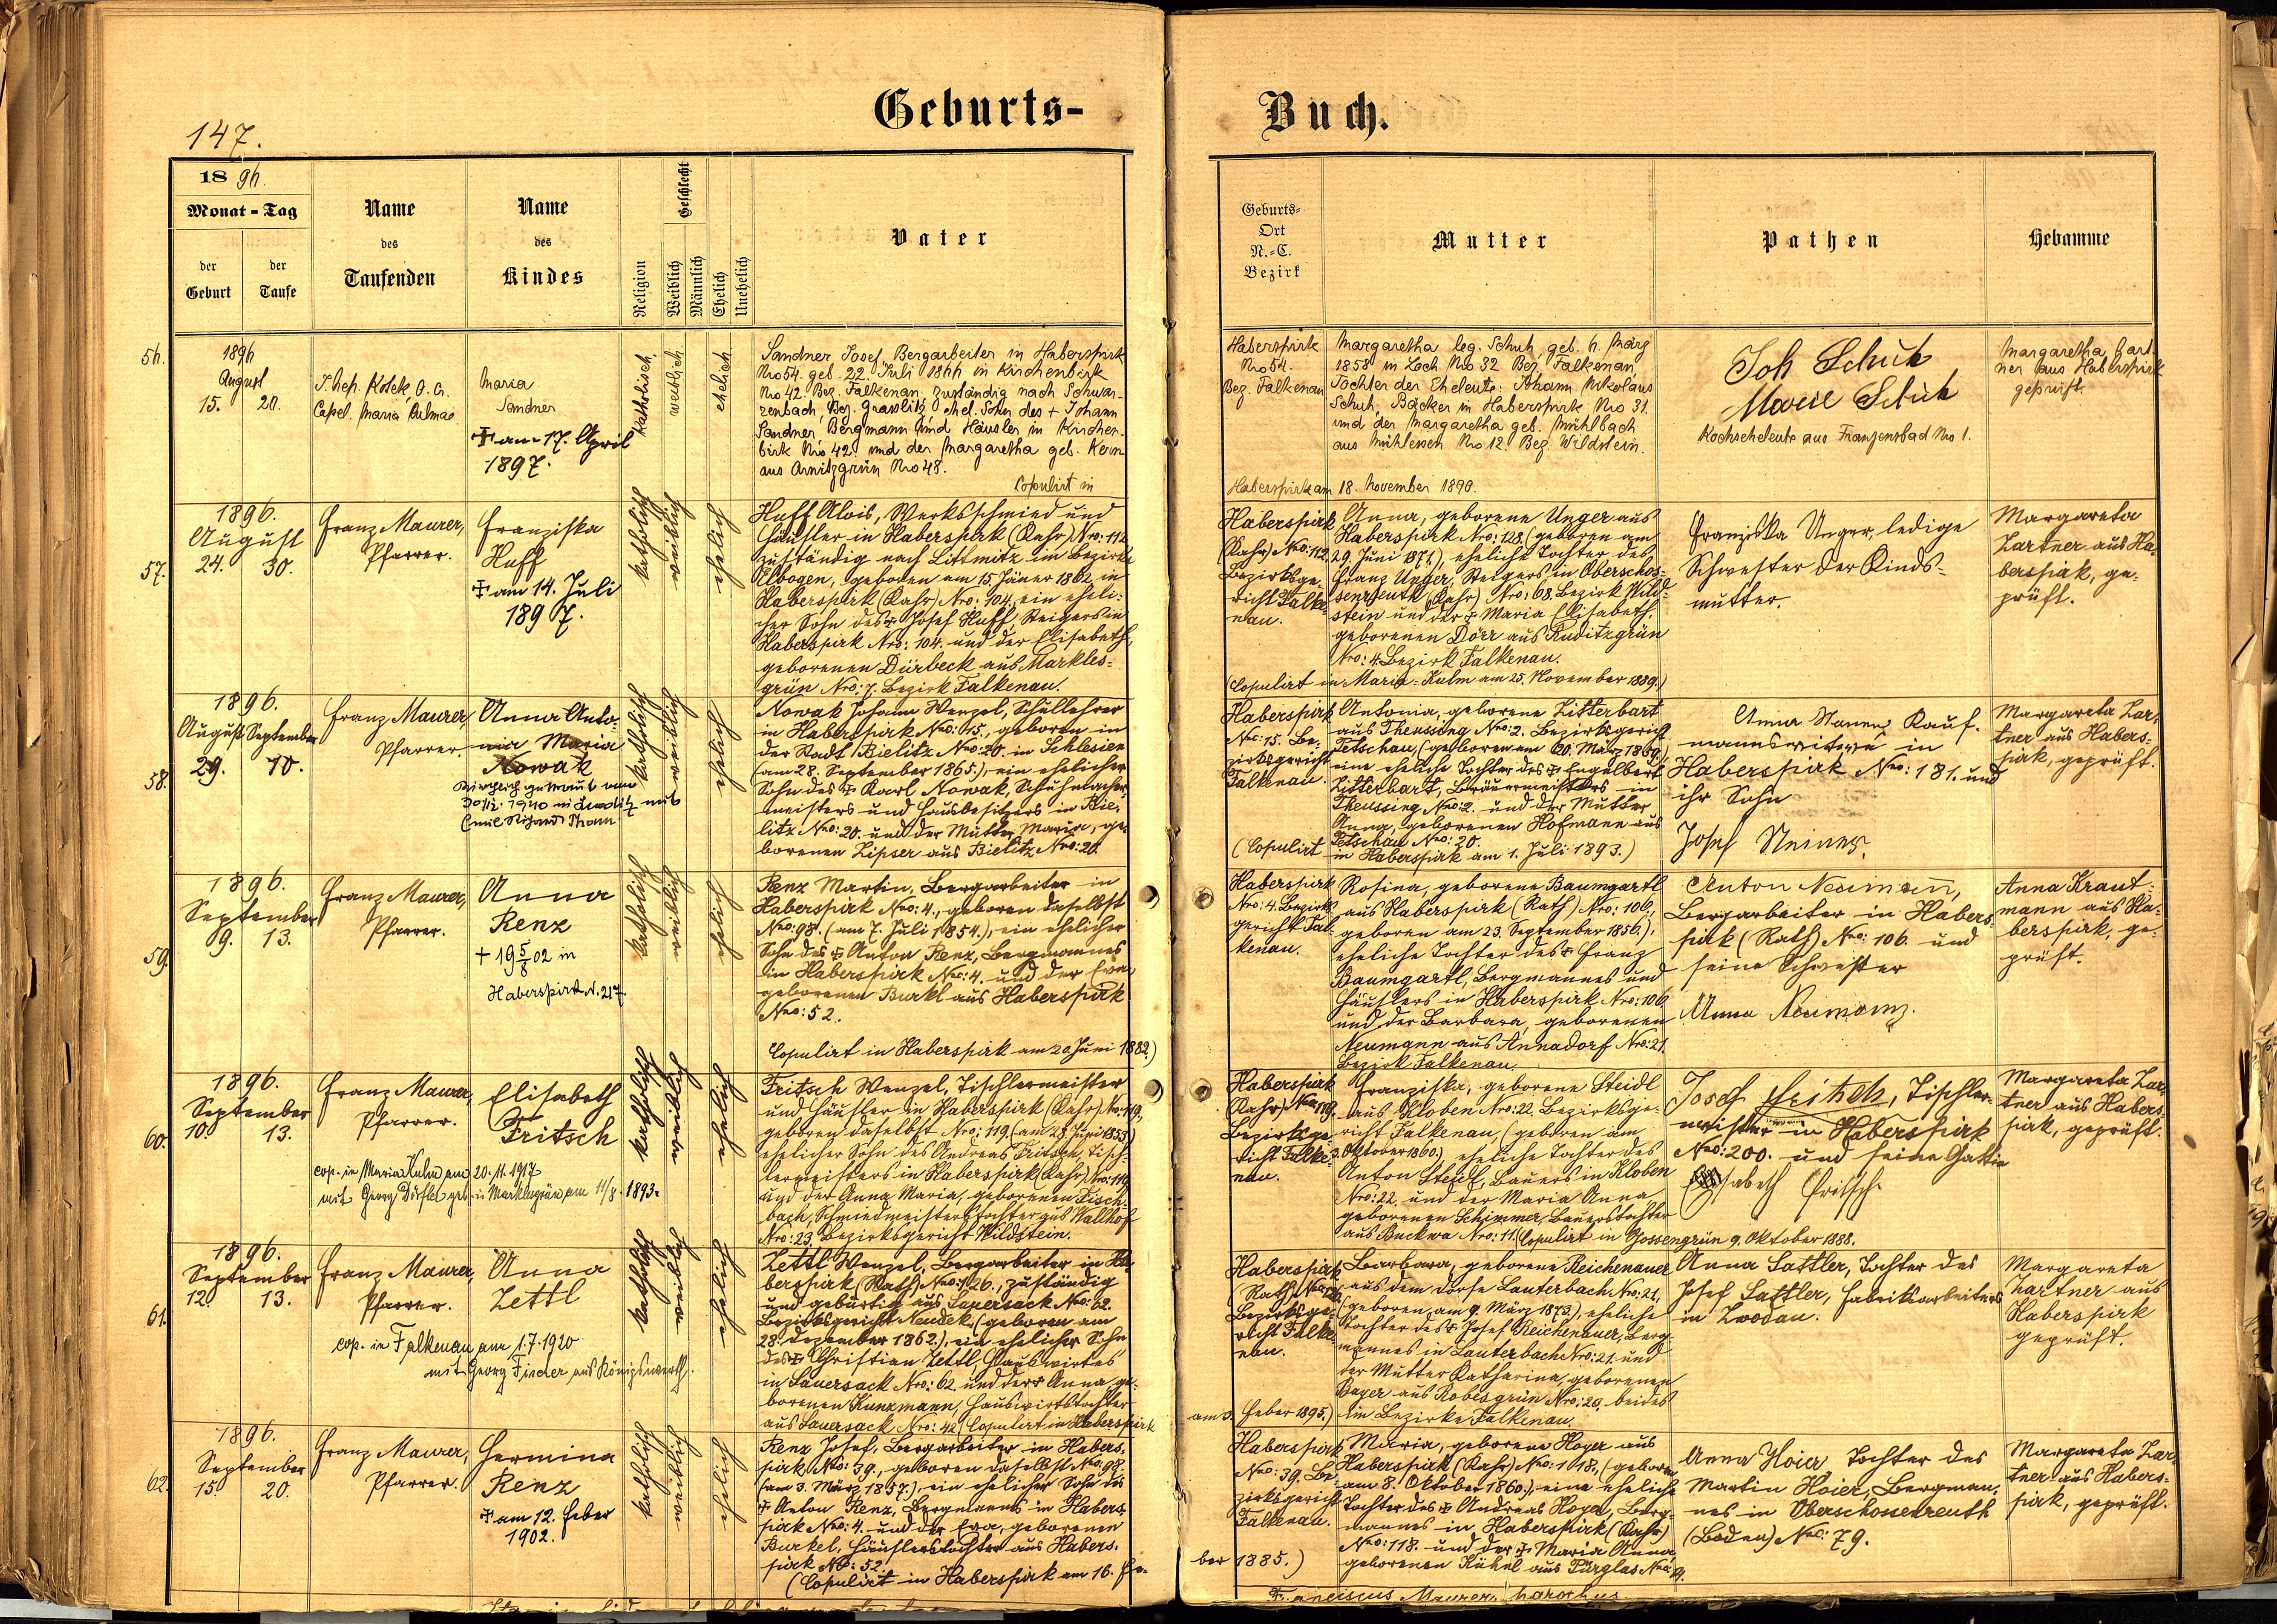 Geburts-
Buch.
147.
1896.
Monat - Tag
der Geburt
der Taufe
Name des Taufenden
Name des Kindes
Religion
Geschlecht
Weiblich
Männlich
Ehelich
Unehelich
Vater
Geburts-
Ort
N.-C.
Bezirk
Mutter
Pathen
Hebamme
56.
1896
August
15. 20.
Capel. Maria Kulmae
Maria
Sandner
✝ am 17. April
1897.
katholisch
weiblich
ehelich
Sandner Josef, Bergarbeiter in Haberspirk
Nro 54. geb. 22. Juli 1866 in Kirchenbirk
Nro 42. Bez. Falkenau, zuständig nach Schwar-
zenbach, Bez. Grasslitz, ehel. Sohn des + Johann
Sandner, Bergmann und Häusler in Kirchen-
birk Nro 42. und der Margaretha geb. Kern
aus Arnitzgrün Nro 48.
Copulirt in
Haberspirk am 18. November 1890.
Haberspirk
Nro 54.
Bez. Falkenau
Margaretha leg. Schuh, geb. 6. März
1858 in Loch Nro 32 Bez. Falkenau,
Tochter der Eheleute: Johann Nikolaus
Schuh, Bäcker in Haberspirk Nro 31.
und der Margaretha geb. Mühlbach
aus Mühlessen Nro 12. Bez. Wildstein.
Joh Schuh
Marie Schuh
Kochseheleute aus Franzensbad Nro 1.
Margaretha Zart-
ner aus Haberspirk
geprüft.
57.
1896.
August
24. 30.
Franz Maurer,
Pfarrer.
Franziska
Huff
✝ am 14. Juli
1897.
katholisch
weiblich
ehelich
Huff Alois, Werksschmied und
Häusler in Haberspirk (Kahr) Nro: 112
zuständig nach Littmitz im Bezirke
Elbogen, geboren am 15. Jäner 1862 in
Haberspirk (Kahr) Nro: 104., ein eheli-
cher Sohn des ✝ Josef Huff, Steigers in
Haberspirk Nro: 104. und der Elisabeth,
geborenen Dürbeck aus Markles-
grün Nro: 7. Bezirk Falkenau.
(Copulirt in Maria-Kulm am 25. November 1889.)
Haberspirk
(Kahr) Nro: 112.
Bezirksge-
richt Falke-
nau.
Anna, geborene Unger aus
Haberspirk Nro: 128. (geboren am
29. Juni 1871), eheliche Tochter des
Franz Unger, Steigers in Oberschos-
senreuth (Kahr) Nro: 68. Bezirk Wild-
stein und der ✝ Maria Elisabeth,
geborenen Dörr aus Ruditzgrün
Nro: 4. Bezirk Falkenau.
Franziska Unger, ledige
Schwester der Kinds-
mutter.
Margareta
Zartner aus Ha-
berspirk, ge-
prüft.
58.
1896.
August September
29. 10.
Franz Maurer,
Pfarrer
Anna Anto-
nia Maria
Nowak
Kirchlich getraut am
katholisch
weiblich
ehelich
Nowak Johann Wenzel, Schullehrer
in Haberspirk Nro: 15., geboren in
der Stadt Bielitz Nro: 20. in Schlesien
(am 28. September 1865.), ein ehelicher
Sohn des ✝ Karl Nowak, Schuhmacher-
meisters und Hausbesitzers in Bie-
litz Nro: 20. und der Mutter Maria, ge-
borenen Lipser aus Bielitz Nro: 20.
Haberspirk
Nro: 15. Be-
zirksgericht
Falkenau.
(Copulirt
Antonia, geborene Zitterbart
aus Theussing Nro: 2. Bezirksgericht
Petschau, (geboren am 20. März 1869.)
eine eheliche Tochter des ✝ Engelbert
Zitterbart, Bräuermeisters in
Theussing Nro: 2. und der Mutter
Anna, geborenen Hofmann aus
Petschau Nro: 20.
in Haberspirk am 1. Juli 1893.)
Kauf-
mannswitwe in
Haberspirk Nro: 181. und
ihr Sohn
Josef
Margareta Zar-
tner aus Habers-
pirk, geprüft.
59.
1896.
September
9. 13.
Franz Maurer,
Pfarrer.
Anna
Renz
+ 19 5/8 02 in
Haberspirk N. 217.
katholisch
weiblich
ehelich
Renz Martin, Bergarbeiter in
Haberspirk Nro: 4., geboren daselbst
Nro: 98. (am 7. Juli 1854.), ein ehelicher
Sohn des ✝ Anton Renz, Bergmannes
in Haberspirk Nro: 4. und der Eva
geborenen Burkl aus Haberspirk
Nro: 52.
Copulirt in Haberspirk am 20. Juni 1882.)
Haberspirk
Nro: 4. Bezirks-
gericht Fal-
kenau.
Rosina, geborene Baumgartl
aus Haberspirk (Rath) Nro: 106.,
geboren am 23. September 1856.),
eheliche Tochter des ✝ Franz
Baumgartl, Bergmannes und
Häuslers in Haberspirk Nro: 106
und der Barbara, geborenen
Neumann aus Annadorf Nro: 21
Bezirk Falkenau.
Anton Neumann,
Bergarbeiter in Habers-
pirk (Rath) Nro: 106. und
seine Schwester
Anna Neumann.
Anna Kraut-
mann aus Ha-
berspirk, ge-
prüft.
60.
1896.
September
10. 13.
Franz Maurer,
Pfarrer.
Elisabeth
Fritsch
cop. in Maria Kulm am 20.11.1917
mit Georg Dörfler geb. in Marklesgrün am 11/8. 1893.
katholisch
weiblich
ehelich
Fritsch Wenzel, Tischlermeister
und Häusler in Haberspirk (Kahr) Nro: 119,
geboren daselbst Nro: 119. (am 28. Juni 1853)
ehelicher Sohn des Andreas Fritsch, Tisch-
lermeisters in Haberspirk (Kahr) Nro: 119
und der Anna Maria, geborenen Fisch-
bach, Schmiedmeisterstochter aus Wallhof
Nro: 23. Bezirksgericht Wildstein.
Haberspirk
(Kahr) Nro: 119.
Bezirksge-
richt Falke-
nau.
Franziska, geborene Steidl
aus Kloben Nro: 22. Bezirksge-
richt Falkenau, (geboren am
3. Oktober 1860.) eheliche Tochter des
Anton Steidl, Bauers in Kloben
Nro: 22. und der Maria Anna
geborenen Schimmer, Bauerstochter
aus Buckwa Nro: 11. (Copulirt in Gossengrün 9. Oktober 1888.
Josef Fritsch, Tischler-
meister in Haberspirk
Nro: 200. und seine Gattin
Elisabeth Fritsch.
Margareta Zar-
tner aus Habers-
pirk, geprüft.
61.
1896.
September
12. 13.
Franz Maurer,
Pfarrer.
Anna
Zettl
cop. in Falkenau am 1.7.1920
mit Georg Fischer aus Königswerth.
katholisch
weiblich
ehelich
Zettl Wenzel, Bergarbeiter in Ha-
berspirk (Rath) Nro: 126., zuständig
und gebürtig aus Sauersack Nro: 62.
Bezirksgericht Neudek, (geboren am
28. Dezember 1862.), ein ehelicher Sohn
des ✝ Christian Zettl, Hauswirtes
in Sauersack Nro: 62. und der ✝ Anna ge-
borenen Kunzmann, Hauswirtstochter
aus Sauersack Nro: 42. (Copulirt in Haberspirk
am 3. Feber 1895.)
Haberspirk
(Rath) Nro: 126.
Bezirksge-
richt Falke-
nau.
Barbara, geborene Reichenauer
aus dem Dorfe Lauterbach Nro: 21,
(geboren am 9. März 1873.), eheliche
Tochter des ✝ Josef Reichenauer, Berg-
mannes in Lauterbach Nro: 21. und
der Mutter Katharina, geborenen
Bayer aus Robesgrün Nro: 20. beides
im Bezirke Falkenau.
Anna Sattler, Tochter des
Josef Sattler, Fabriksarbeiters
in Zwodau.
Margareta
Zartner aus
Haberspirk
geprüft.
62.
1896.
September
15. 20.
Franz Maurer,
Pfarrer.
Hermina
Renz
✝ am 12. Feber
1902.
katholisch
weiblich
ehelich
Renz Josef, Bergarbeiter in Habers-
pirk Nro: 39., geboren daselbst Nro: 98.
(am 3. März 1857.), ein ehelicher Sohn des
✝ Anton Renz, Bergmannes in Habers-
pirk Nro: 4. und der Eva, geborenen
Burkel, Häuslerstochter aus Habers-
pirk Nro: 52.
(Copulirt in Haberspirk am 16. Fe-
ber 1885.)
Haberspirk
Nro: 39. Be-
zirksgericht
Falkenau.
Maria, geborene Hoyer aus
Haberspirk (Kahr) Nro: 118., (geboren
am 8. Oktober 1860.), eine eheliche
Tochter des ✝ Andreas Hoyer, Berg-
mannes in Haberspirk (Kahr)
Nro: 118. und der ✝ Maria Anna,
geborenen Kühnl aus Pürglas Nro: 19.
Anna Hoier Tochter des
Martin Hoier, Bergman-
nes in Oberschossenreuth
(Boden) Nro: 79.
Margareta Zar-
tner aus Habers-
pirk, geprüft.
Franciscus Maurer, parochus